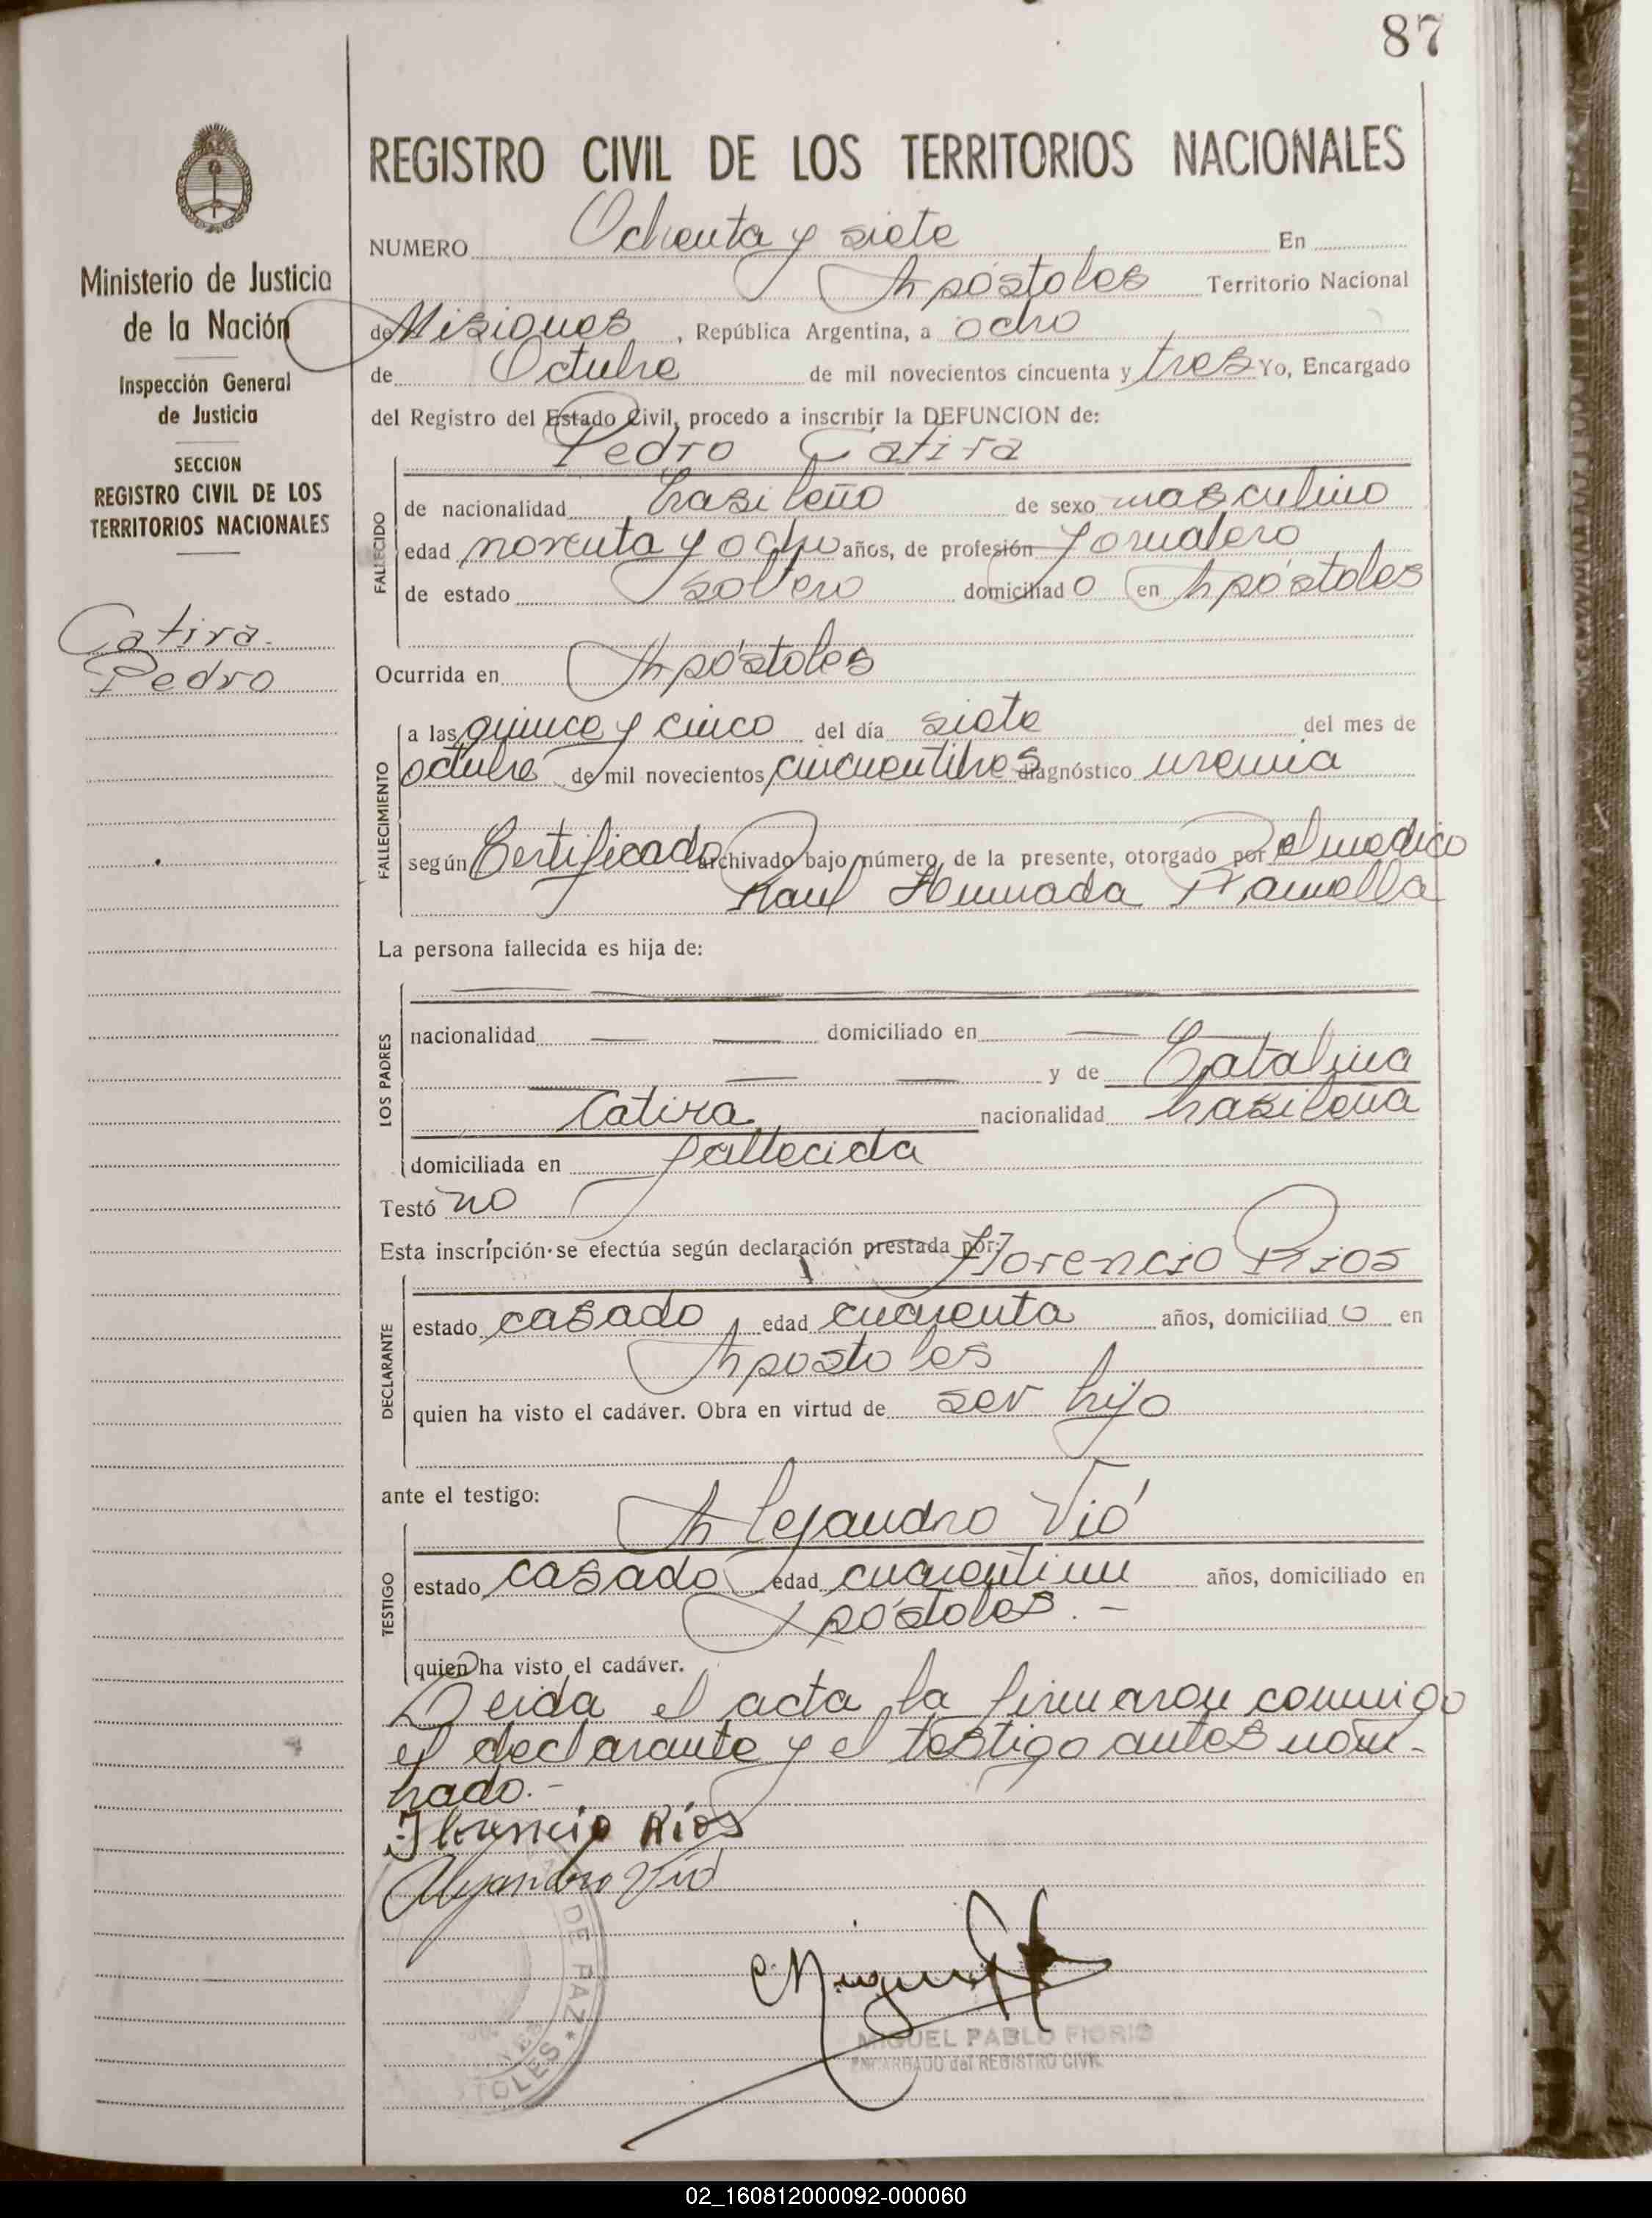 87
REGISTRO CIVIL DE LOS TERRITORIOS NACIONALES
Ministerio de Justicia
de la Nación
Inspección General
de Justicia
SECCION
REGISTRO CIVIL DE LOS
TERRITORIOS NACIONALES
Catira
Pedro
NUMERO Ochenta y siete En
Apóstoles Territorio Nacional
de Misiones, República Argentina, a ocho
de Octubre de mil novecientos cincuenta y tres Yo, Encargado
del Registro del Estado Civil, procedo a inscribir la DEFUNCION de:
Pedro Catira
FALLECIDO
de nacionalidad brasileño de sexo masculino
edad noventa y ocho años, de profesión Jornalero
de estado soltero domiciliado en Apóstoles
Ocurrida en Apóstoles
FALLECIMIENTO
a las quince y cinco del día siete del mes de
octubre de mil novecientos cincuentitres diagnóstico uremia
según Certificado archivado bajo número de la presente, otorgado por el medico
Raul Ramella
La persona fallecida es hija de:
LOS PADRES
nacionalidad — — domiciliado en —
— — y de Catalina
Catira nacionalidad brasileña
domiciliada en fallecida
Testó no
Esta inscripción se efectúa según declaración prestada por:
Florencio Rios
DECLARANTE
estado casado edad cuarenta años, domiciliado en
Apostoles
quien ha visto el cadáver. Obra en virtud de ser hijo
ante el testigo:
Alejandro Vió
TESTIGO
estado casado edad cuarentiun años, domiciliado en
Apóstoles.-
quien ha visto el cadáver.
Leida el acta la firmaron conmigo
el declarante y el testigo antes nom-
brado.-
Florencio Ríos
Alejandro Vió
DE PAZ *
TOLES
MIGUEL PABLO FIORIO
ENCARGADO del REGISTRO CIVIL
02_160812000092-000060